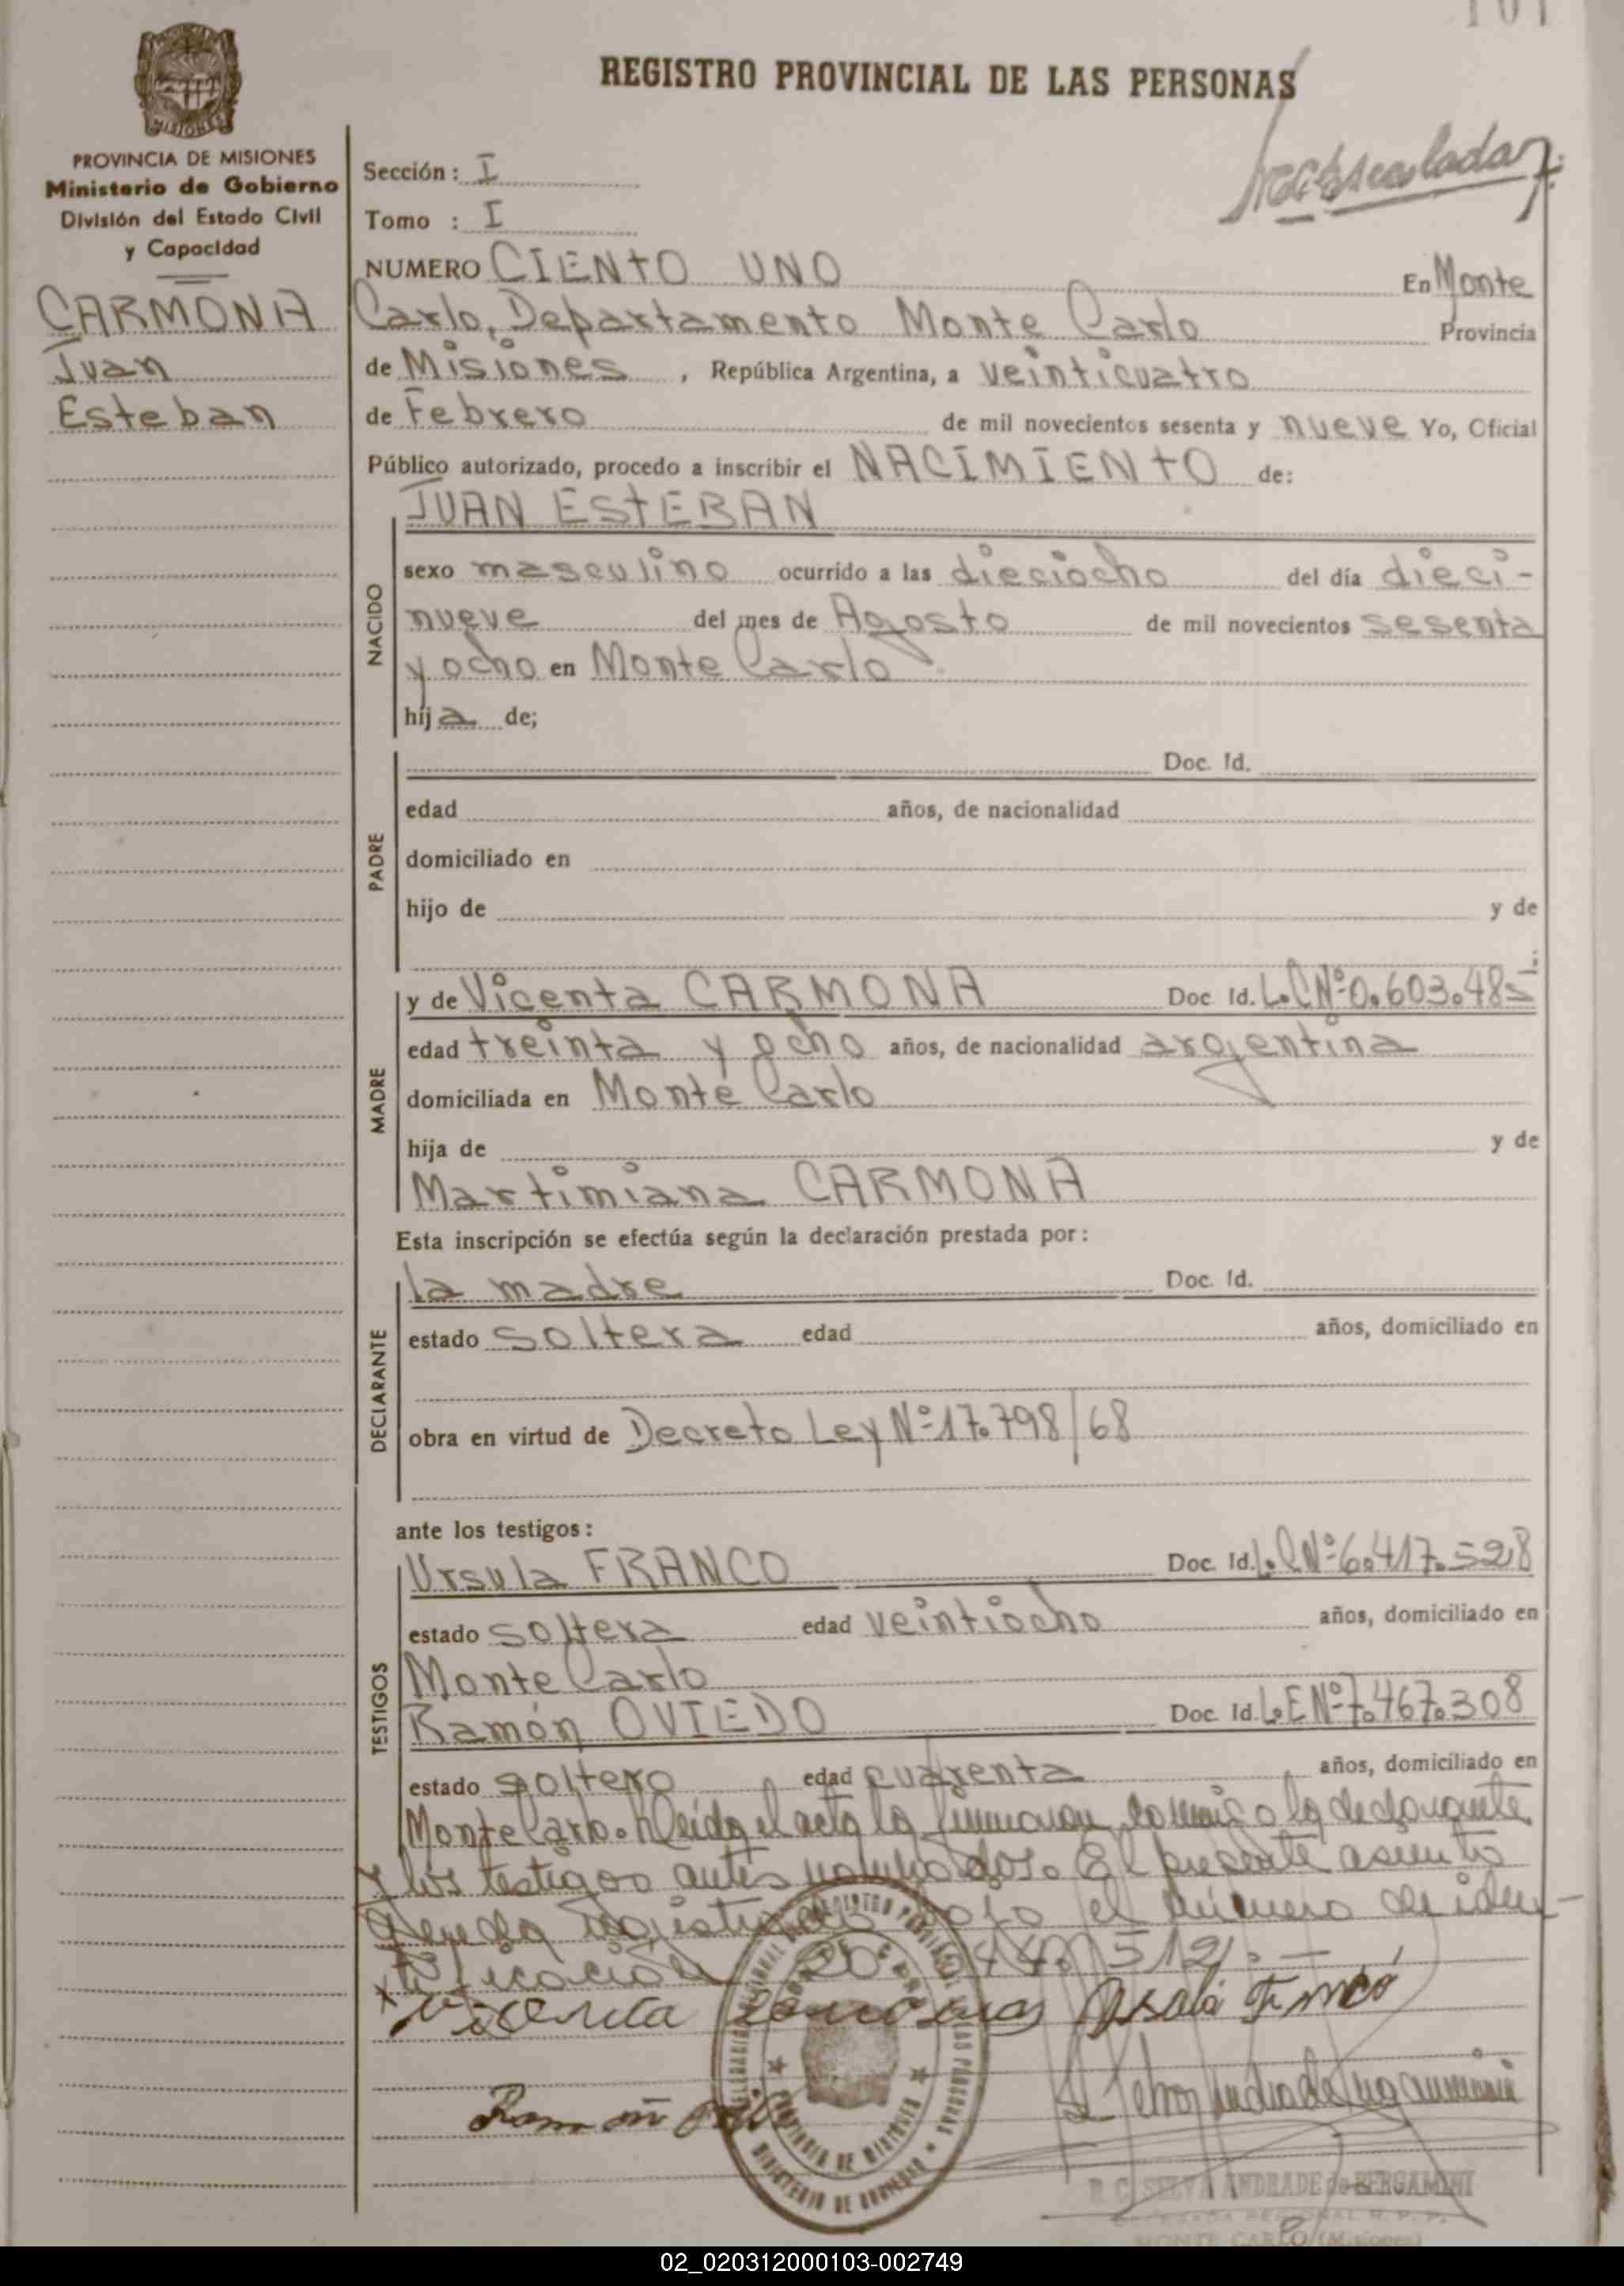 101
REGISTRO PROVINCIAL DE LAS PERSONAS
MISIONES
PROVINCIA DE MISIONES
Ministerio de Gobierno
División del Estado Civil
y Capacidad
CARMONA
Juan
Esteban
Sección: I
Tomo : I
NUMERO CIENTO UNO En Monte
Carlo, Departamento Monte Carlo Provincia
de Misiones, República Argentina, a veinticuatro
de Febrero de mil novecientos sesenta y nueve Yo, Oficial
Público autorizado, procedo a inscribir el NACIMIENTO de:
NACIDO
JUAN ESTEBAN
sexo masculino ocurrido a las dieciocho del día dieci-
nueve del mes de Agosto de mil novecientos sesenta
y ocho en Monte Carlo
hija de;
PADRE
Doc. Id.
edad años, de nacionalidad
domiciliado en
hijo de y de
MADRE
y de Vicenta CARMONA Doc. Id. L.C Nº 0.603.485
edad treinta y ocho años, de nacionalidad argentina
domiciliada en Monte Carlo
hija de y de
Martimiana CARMONA
Esta inscripción se efectúa según la declaración prestada por:
DECLARANTE
la madre Doc. Id.
estado soltera edad años, domiciliado en
obra en virtud de Decreto Ley Nº 17.798/68
ante los testigos:
TESTIGOS
Ursula FRANCO Doc. Id. L.C Nº 6.417.528
estado soltera edad veintiocho años, domiciliado en
Monte Carlo
Ramón OVIEDO Doc. Id. L.E Nº 7.467.308
estado soltero edad cuarenta años, domiciliado en
Monte Carlo. Leída el acta la firmaron conmigo la declarante
y los testigos antes nombrados. El presente asiento
queda registrado bajo el número de iden-
tificación 20.
Vicenta Carmona
PROVINCIA DE MISIONES
MINISTERIO DE GOBIERNO
Ramón
SILVA ANDRADE de BERGAMINI
MONTE CARLO (Misiones)
02_020312000103-002749